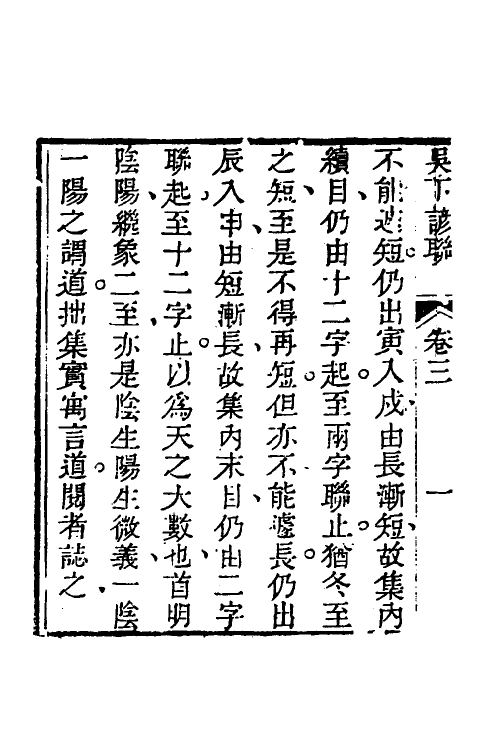 吳下諺聯 卷三 一
不能遽短仍出寅入戌由長漸短故集內
續目仍由十二字起至兩字聯止猶冬至
之短至是不得再短但亦不能遽長仍出
辰入申由短漸長故集內末目仍由二字
聯起至十二字止以為天之大數也首明
陰陽繼象二至亦是陰生陽生微義一陰
一陽之謂道拙集實寓言道閱者誌之